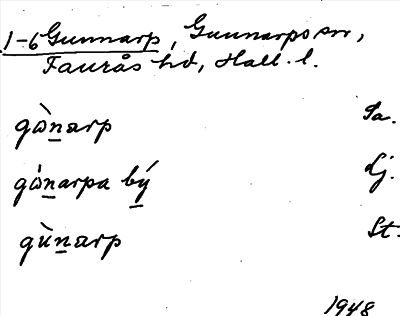 1-6 Gunnarp, Gunnarps sn,
Faurås hd, Hall. l.
gὼn̲arp Sa.
gώn̲arpa bý̲ Lj.
gùn̲arp St.
1948